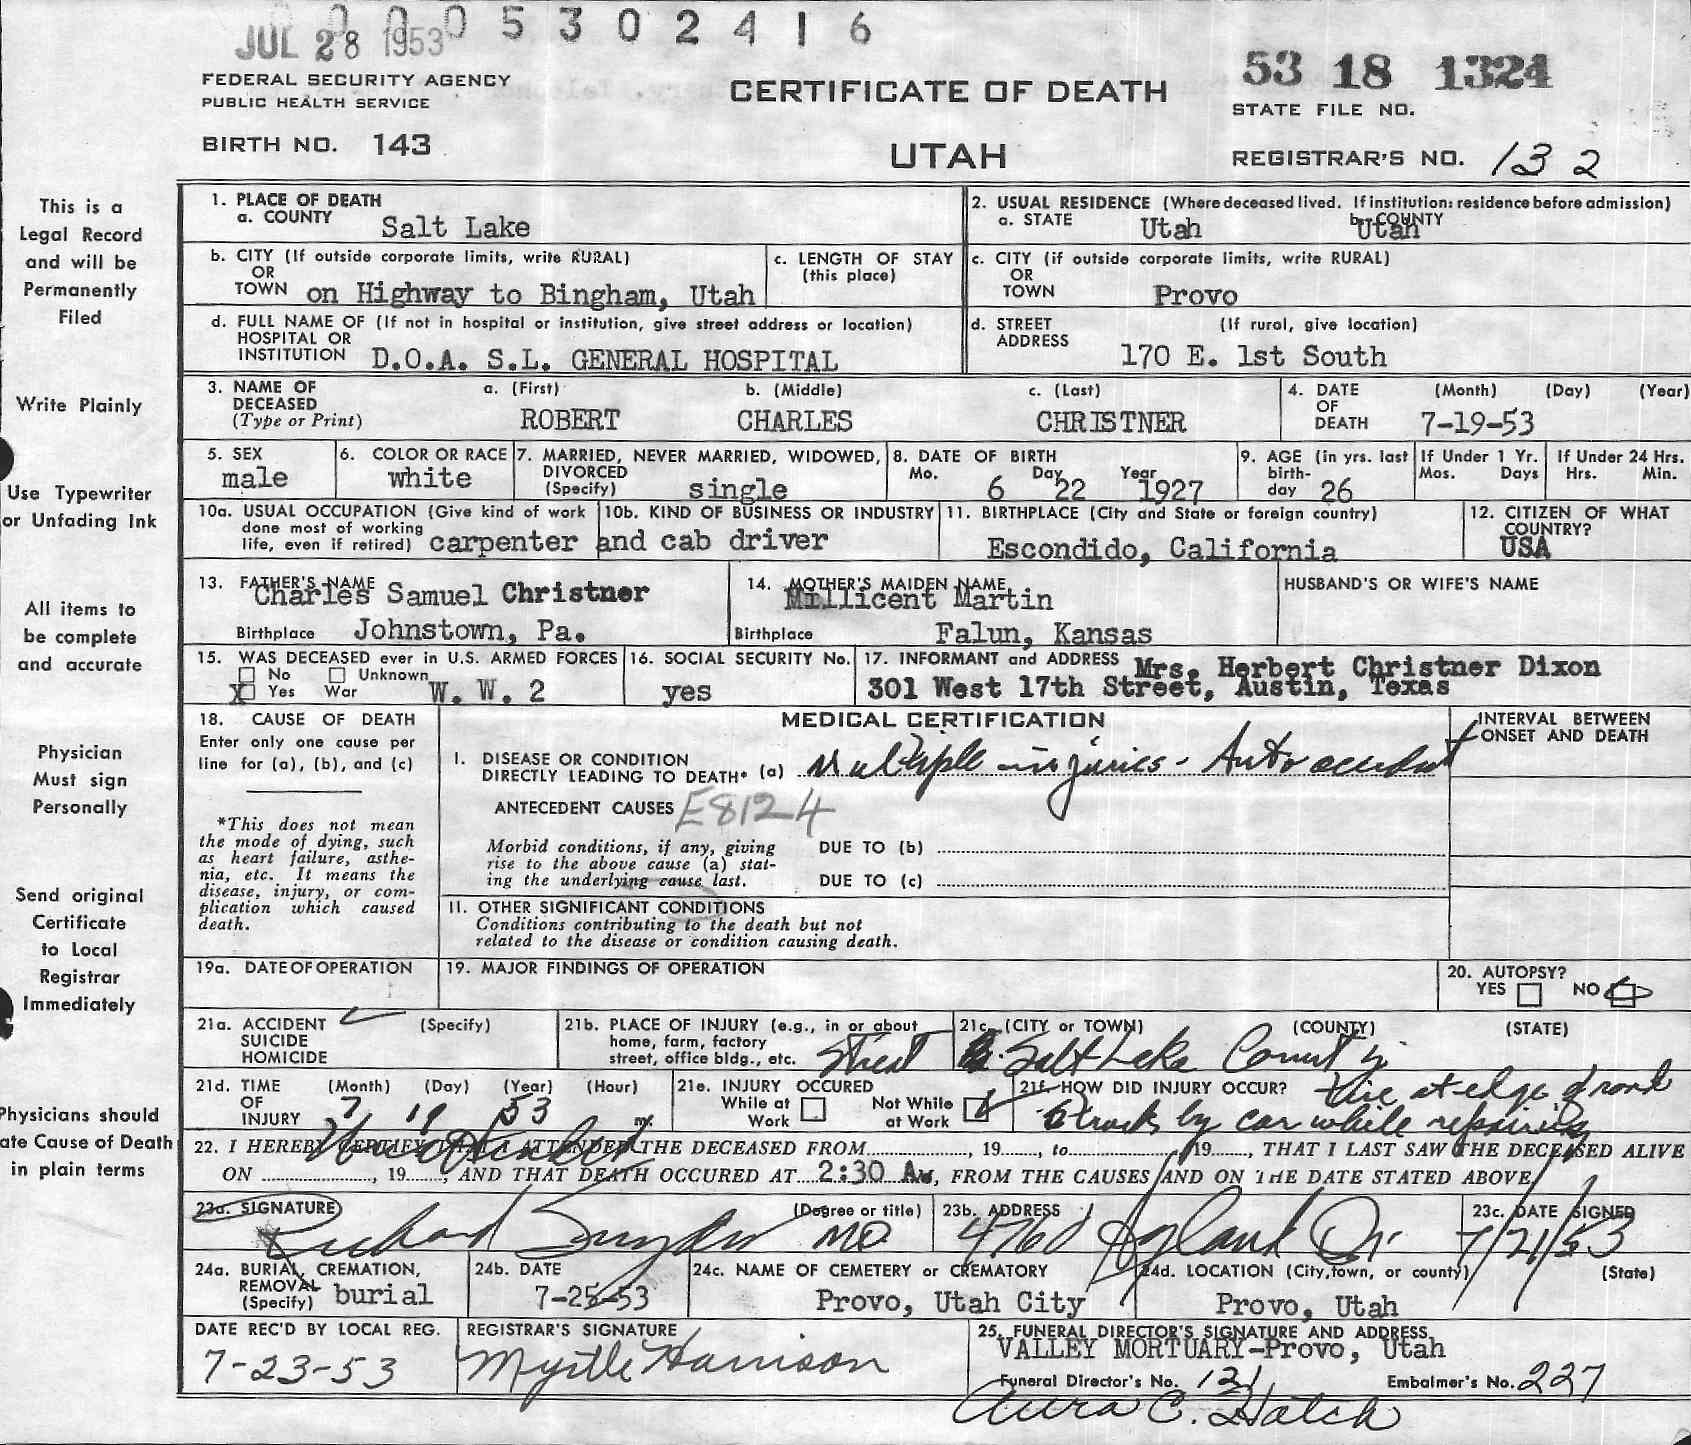 0 0 0 0 5 3 0 2 4 1 6
JUL 28 1953
FEDERAL SECURITY AGENCY
PUBLIC HEALTH SERVICE
BIRTH NO. 143
CERTIFICATE OF DEATH
UTAH
53 18 1324
STATE FILE NO.
REGISTRAR'S NO. 132
This is a
Legal Record
and will be
Permanently
Filed
Write Plainly
Use Typewriter
or Unfading Ink
All items to
be complete
and accurate
Physician
Must sign
Personally
Send original
Certificate
to Local
Registrar
Immediately
Physicians should
ate Cause of Death
in plain terms
1. PLACE OF DEATH
a. COUNTY Salt Lake
2. USUAL RESIDENCE (Where deceased lived. If institution: residence before admission)
a. STATE Utah b. COUNTY Utah
b. CITY (If outside corporate limits, write RURAL)
OR
TOWN on Highway to Bingham, Utah
c. LENGTH OF STAY
(this place)
c. CITY (if outside corporate limits, write RURAL)
OR
TOWN Provo
d. FULL NAME OF (If not in hospital or institution, give street address or location)
HOSPITAL OR
INSTITUTION D.O.A. S.L. GENERAL HOSPITAL
d. STREET (If rural, give location)
ADDRESS 170 E. 1st South
3. NAME OF DECEASED (Type or Print)
a. (First) b. (Middle) c. (Last)
ROBERT CHARLES CHRISTNER
4. DATE OF DEATH (Month) (Day) (Year)
7-19-53
5. SEX
male
6. COLOR OR RACE
white
7. MARRIED, NEVER MARRIED, WIDOWED,
DIVORCED
(Specify) single
8. DATE OF BIRTH
Mo. Day Year
6 22 1927
9. AGE (in yrs. last
birth-
day 26
If Under 1 Yr.
Mos. Days
If Under 24 Hrs.
Hrs. Min.
10a. USUAL OCCUPATION (Give kind of work
done most of working
life, even if retired) carpenter and cab driver
10b. KIND OF BUSINESS OR INDUSTRY
11. BIRTHPLACE (City and State or foreign country)
Escondido, California
12. CITIZEN OF WHAT
COUNTRY?
USA
13. FATHER'S NAME
Charles Samuel Christner
Birthplace Johnstown, Pa.
14. MOTHER'S MAIDEN NAME
Millicent Martin
Birthplace Falun, Kansas
HUSBAND'S OR WIFE'S NAME
15. WAS DECEASED ever in U.S. ARMED FORCES
No Unknown
X Yes War W. W. 2
16. SOCIAL SECURITY No.
yes
17. INFORMANT and ADDRESS Mrs. Herbert Christner Dixon
301 West 17th Street, Austin, Texas
18. CAUSE OF DEATH
Enter only one cause per
line for (a), (b), and (c)
*This does not mean
the mode of dying, such
as heart failure, asthe-
nia, etc. It means the
disease, injury, or com-
plication which caused
death.
MEDICAL CERTIFICATION
I. DISEASE OR CONDITION
DIRECTLY LEADING TO DEATH* (a) Multiple injuries - Auto accident
ANTECEDENT CAUSES E8124
Morbid conditions, if any, giving
rise to the above cause (a) stat-
ing the underlying cause last.
DUE TO (b)
DUE TO (c)
II. OTHER SIGNIFICANT CONDITIONS
Conditions contributing to the death but not
related to the disease or condition causing death.
INTERVAL BETWEEN
ONSET AND DEATH
19a. DATE OF OPERATION
19. MAJOR FINDINGS OF OPERATION
20. AUTOPSY?
YES NO
21a. ACCIDENT (Specify)
SUICIDE
HOMICIDE
21b. PLACE OF INJURY (e.g., in or about
home, farm, factory
street, office bldg., etc. Street
21c. (CITY or TOWN) (COUNTY) (STATE)
Salt Lake County
21d. TIME OF INJURY (Month) (Day) (Year) (Hour)
7 19 53 m.
21e. INJURY OCCURED
While at Work Not While at Work
21f. HOW DID INJURY OCCUR? tire at edge of road
Struck by car while repairing
22. I HEREBY CERTIFY THAT I ATTENDED THE DECEASED FROM, 19, to 19, THAT I LAST SAW THE DECEASED ALIVE
ON, 19, AND THAT DEATH OCCURED AT 2:30 A.m., FROM THE CAUSES AND ON THE DATE STATED ABOVE
23a. SIGNATURE (Degree or title)
Richard Snyder MD
23b. ADDRESS
4760 Dr
23c. DATE SIGNED
7/21/53
24a. BURIAL, CREMATION,
REMOVAL
(Specify) burial
24b. DATE
7-25-53
24c. NAME OF CEMETERY or CREMATORY
Provo, Utah City
24d. LOCATION (City, town, or county) (State)
Provo, Utah
DATE REC'D BY LOCAL REG.
7-23-53
REGISTRAR'S SIGNATURE
Myrtle Harrison
25. FUNERAL DIRECTOR'S SIGNATURE AND ADDRESS
VALLEY MORTUARY-Provo, Utah
Funeral Director's No. 131 Embalmer's No. 227
Aura C. Hatch